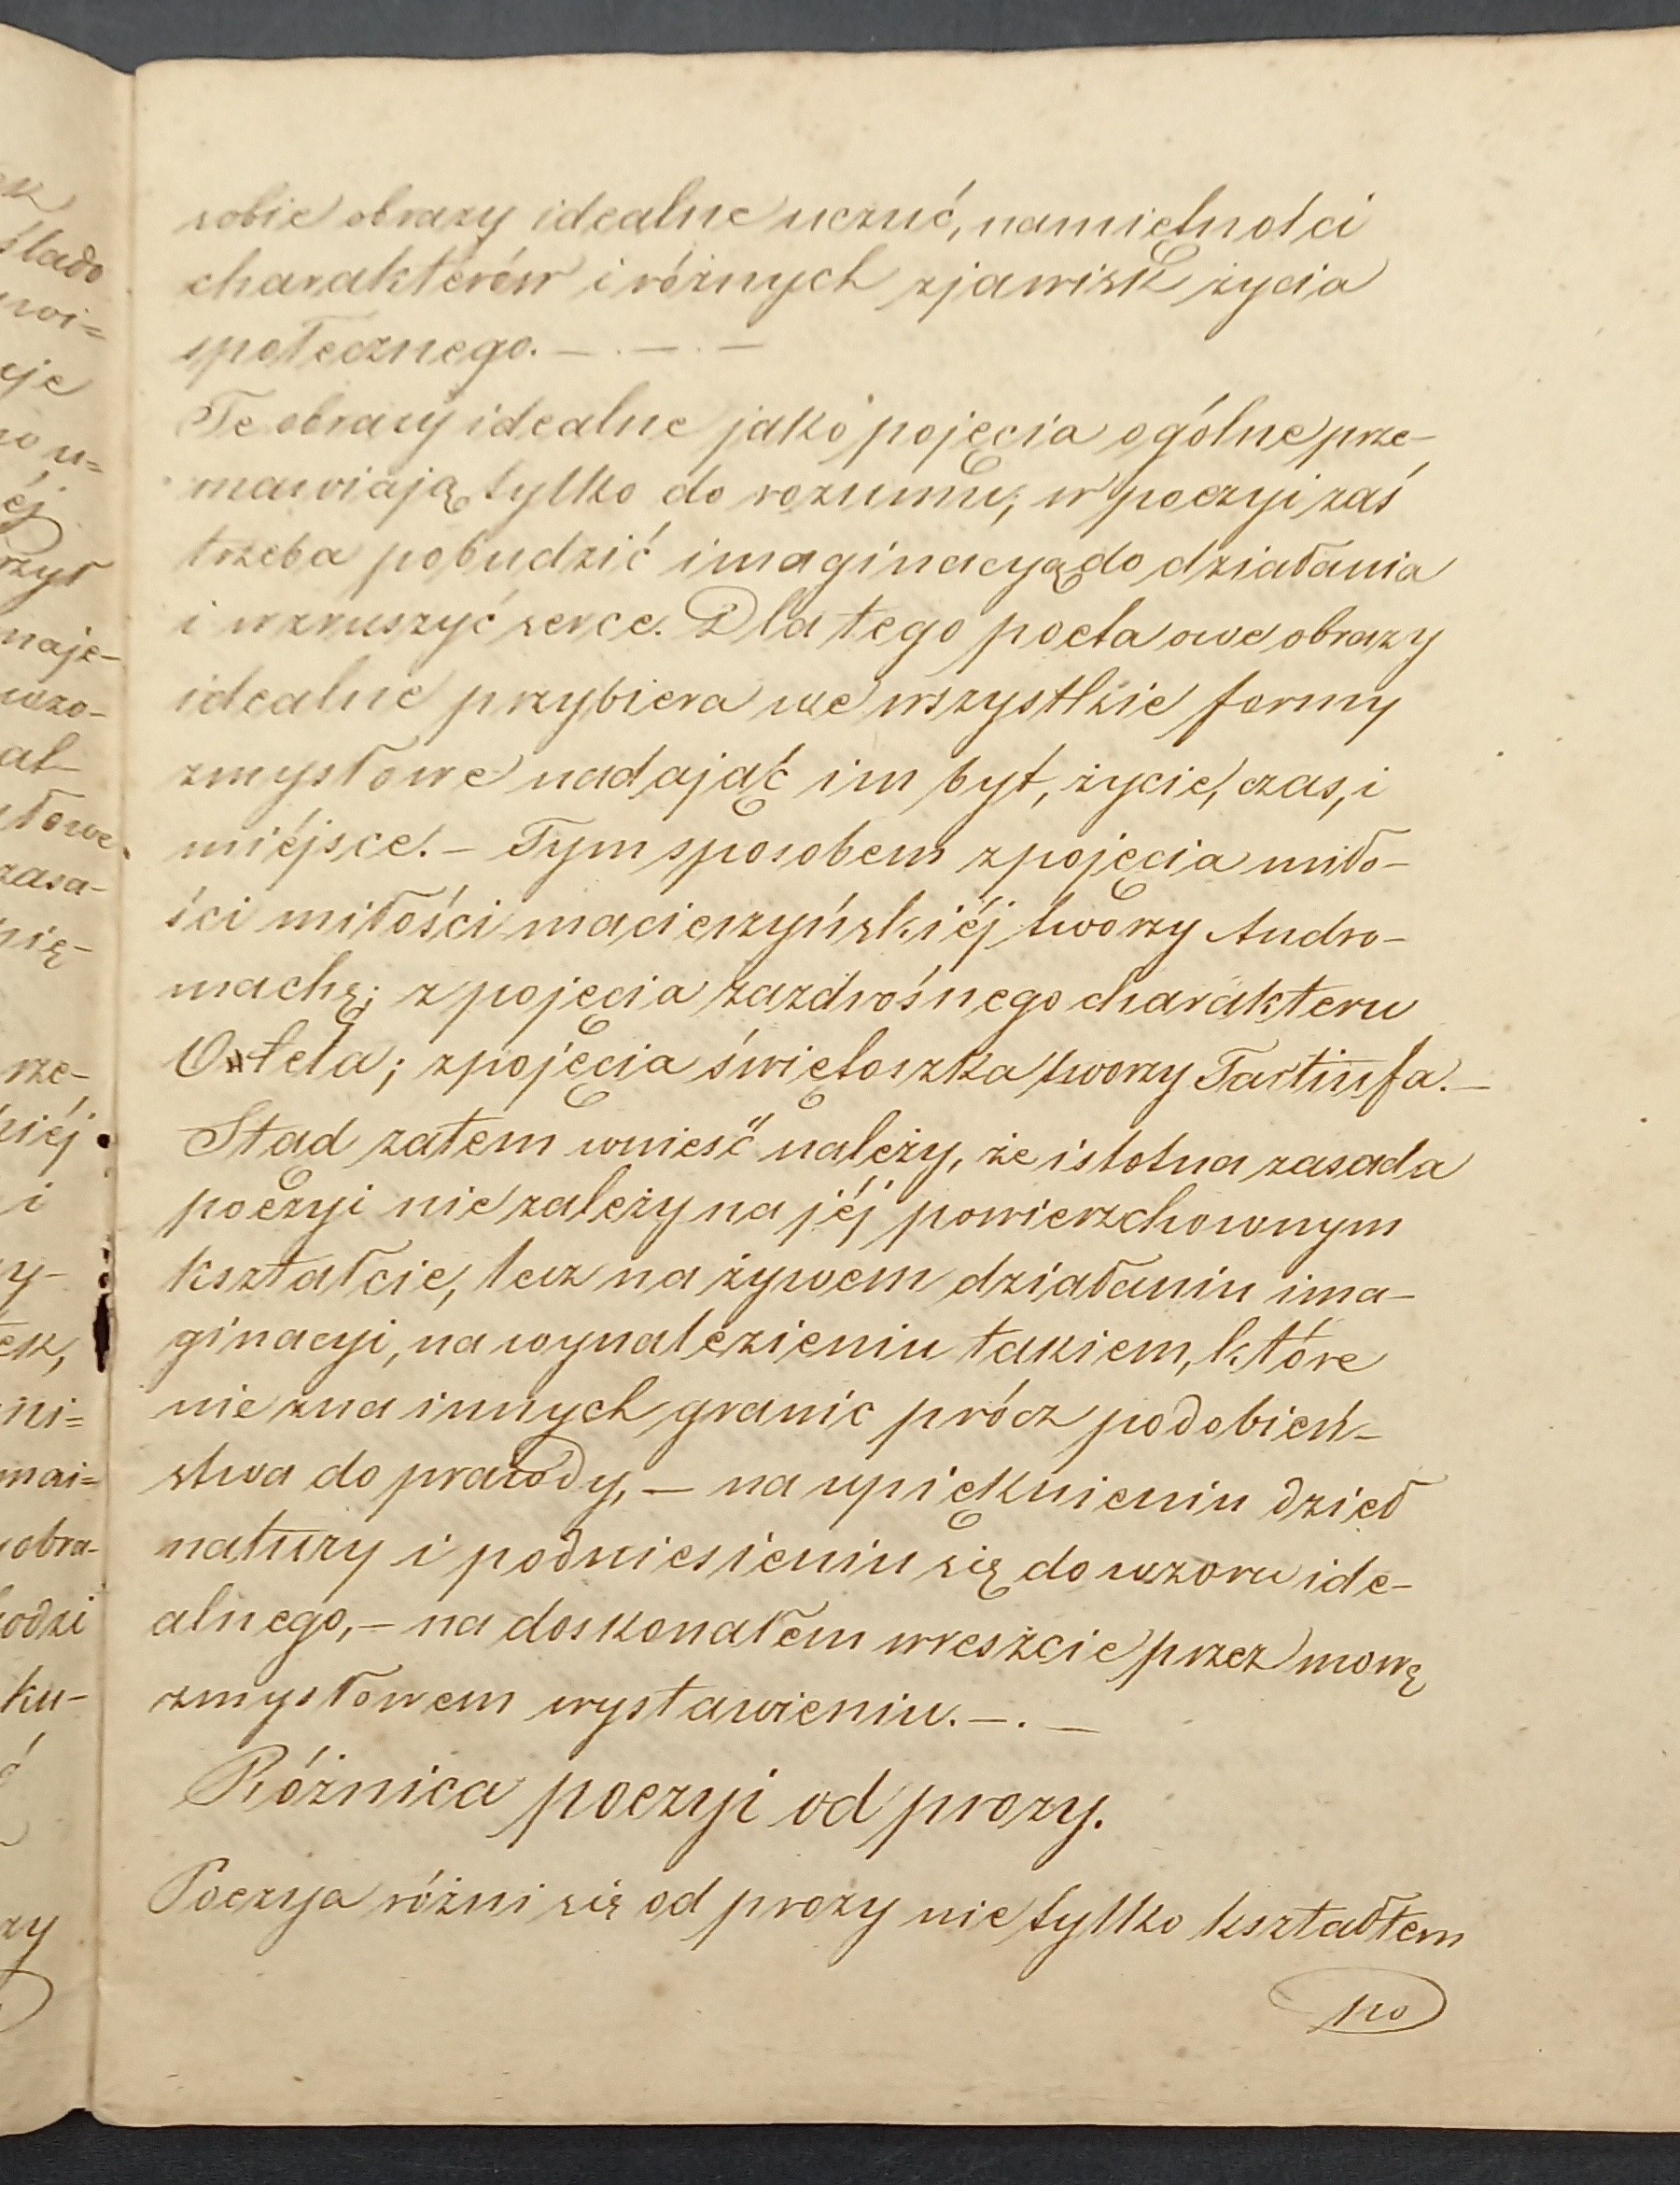 sobie obrazy idealne uczuć, namiętności
charakterów i różnych zjawisk życia
społecznego. — . — . —
Te obrazy idealne jako pojęcia ogólne prze-
mawiają tylko do rozumu; w poezyi zaś
trzeba pobudzić imaginacyą do działania
i wzruszyć serce. Dla tego poeta owe obrazy
idealne przybiera we wszystkie formy
zmysłowe nadając im byt, życie, czas, i
miéjsce. — Tym sposobem z pojęcia miło-
ści miłości macierzyńskiéj tworzy Andro-
machę; z pojęcia zazdrośnego charakteru
Otela; z pojęcia świętoszka tworzy Tartiufa. —
Stąd zatem wnieść należy, że istotna zasada
poezyi nie zależy na jéj powierzchownym
kształcie, lecz na żywem działaniu ima-
ginacyi, na wynalezieniu takiem, które
nie zna innych granic prócz podobień-
stwa do prawdy, — na upięknieniu dzieł
natury i podniesieniu się do wzoru ide-
alnego, — na doskonałem wreszcie przez mowę
zmysłowem wystawieniu. — . —
Różnica poezyi od prozy.
Poezya różni się od prozy nie tylko kształtem
po